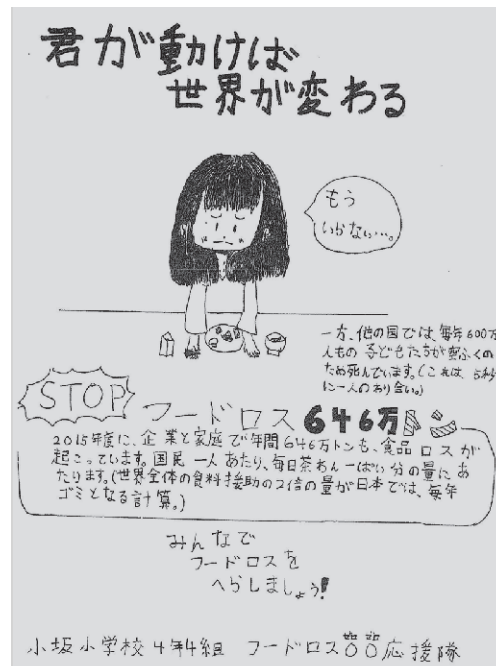 君が動けば
世界が変わる
もう
いらない…。
一方、他の国では、毎年600万
人もの子どもたちが空ふくの
ため死んでいます。(これは、5秒
に一人のわり合い。)
STOP フードロス646万トン
2015年度に、企業と家庭で年間646万トンも、食品ロスが
起こっています。国民一人あたり、毎日茶わん一ぱい分の量にあ
たります。(世界全体の食料援助の2倍の量が日本では、毎年
ゴミとなる計算。)
みんなで
フードロスを
へらしましょう!
小坂小学校4年4組 フードロス 応援隊